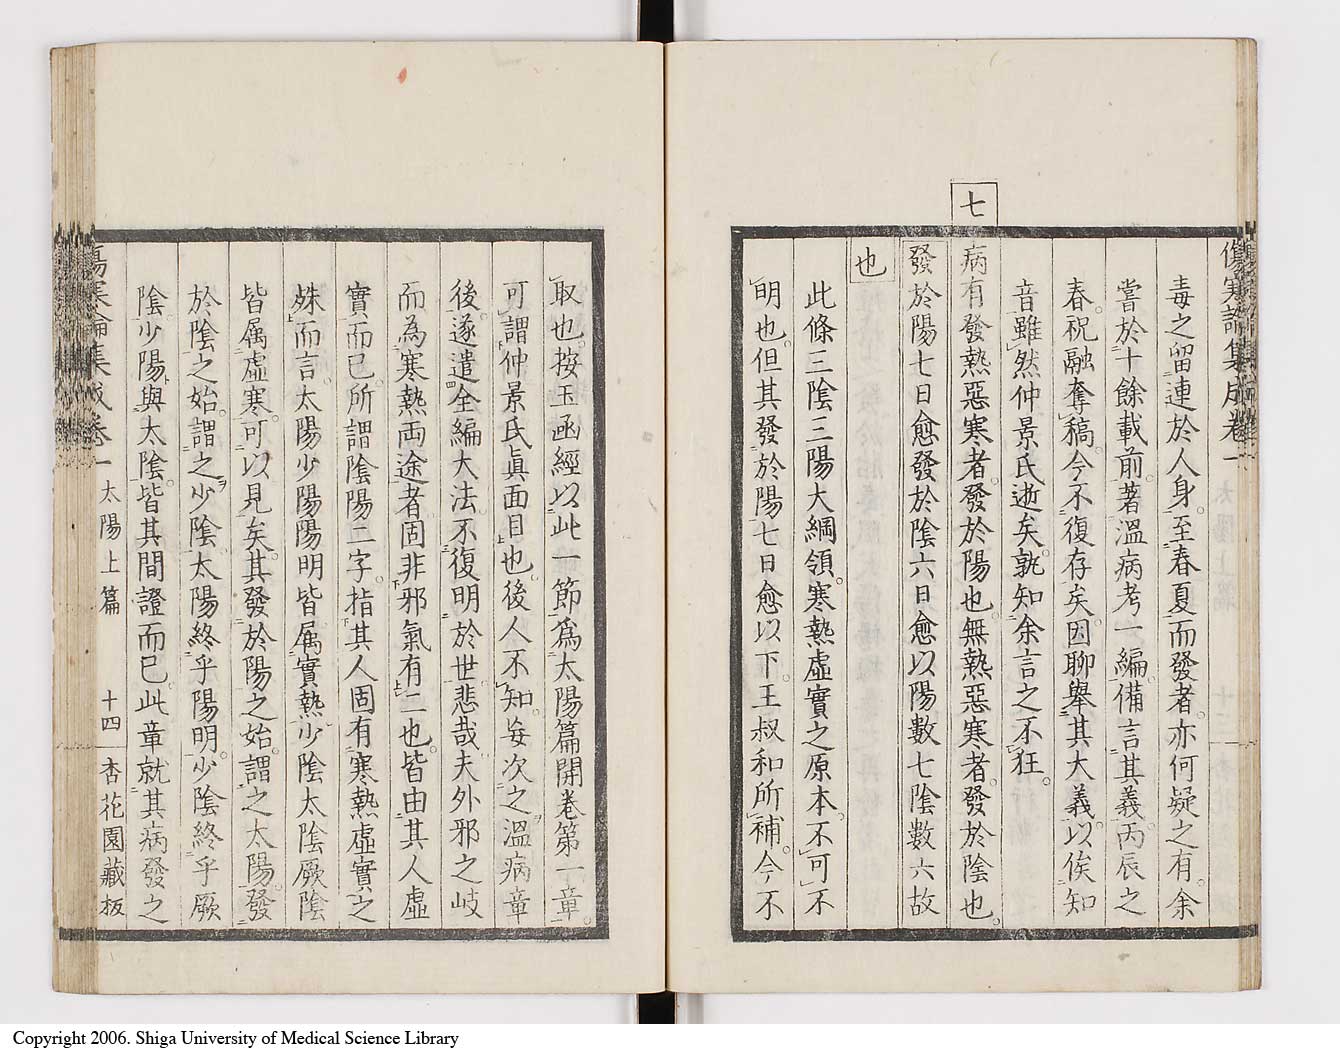 傷寒論集成卷一
毒之留連於人身至春夏而發者亦何疑之有余
嘗於十餘載前著溫病考一編備言其義丙辰之
春祝融奪稿今不復存矣因聊舉其大義以俟知
音雖然仲景氏逝矣孰知余言之不狂
七
病有發熱惡寒者發於陽也無熱惡寒者發於陰也
發於陽七日愈發於陰六日愈以陽數七陰數六故
也
此條三陰三陽大綱領寒熱虛實之原本不可不
明也但其發於陽七日愈以下王叔和所補今不
取也按玉函經以此一節爲太陽篇開卷第一章
可謂仲景氏眞面目也後人不知每次之溫病章
後遂遣全編大法不復明於世悲哉夫外邪之岐
而為寒熱両途者固非邪氣有二也皆由其人虛
實而已所謂陰陽二字指其人固有寒熱虛實之
殊而言太陽少陽陽明皆属實熱少陰太陰厥陰
皆属虛寒可以見矣其發於陽之始謂之太陽發
於陰之始謂之少陰太陽終乎陽明少陰終乎厥
陰少陽與太陰皆其間證而已此章就其病發之
傷寒論集成卷一 太陽上篇 十四 杏花園藏板
Copyright 2006. Shiga University of Medical Science Library